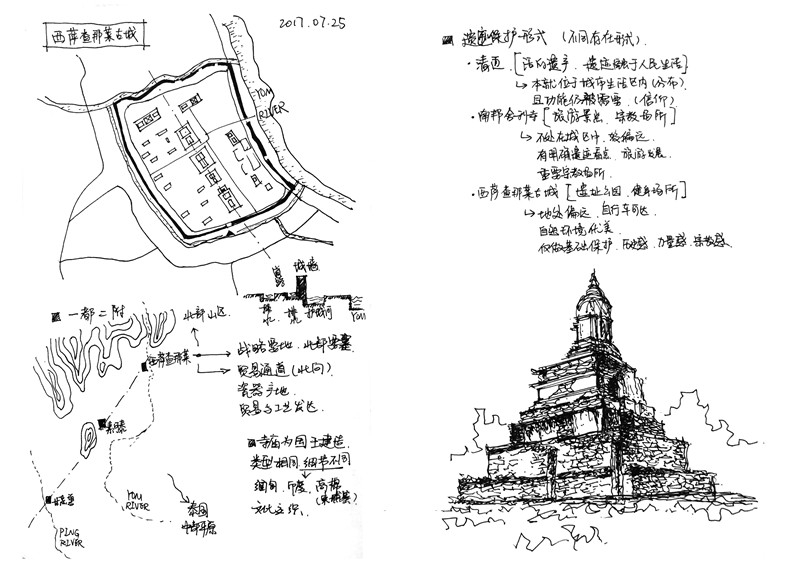 西萨查那莱古城
2017.07.25
YOM
RIVER
城墙
护城河
YOM
■ 一都二附
北部山区
西萨查那莱
战略要地·北部要塞
贸易通道（北向）
瓷器产地
贸易与工艺发达
素可泰
■ 寺庙为国王建造
类型相同，细节不同
缅甸、印度、高棉
文化交织
YOM
RIVER
泰国
中部平原
PING
RIVER
■ 遗迹保护形式（不同存在形式）
· 清迈 [活的遗产，遗迹融于人民生活]
↳ 本就位于城市生活区内（分布）
且功能仍被需要（信仰）
· 南邦会利寺 [旅游景点、宗教场所]
↳ 不处在城区中，较偏远
有明确遗迹看点，旅游发展
重要宗教场所
· 西萨查那莱古城 [遗址公园，健身场所]
↳ 地处偏远，自行车可达
自然环境优美
仅做基础保护，历史感、力量感、宗教感